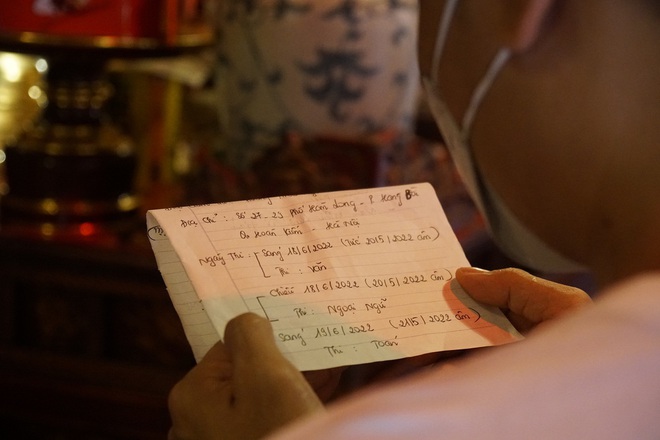 Địa chỉ : Số 27-29 Phố Hàm Long - P. Hàng Bài
Q. Hoàn Kiếm - Hà Nội
Ngày Thi : Sáng 18/6/2022 (tức 20/5/2022 âm)
Thi : Văn
Chiều 18/6/2022 (20/5/2022 âm)
Thi : Ngoại Ngữ
Sáng 19/6/2022 (21/5/2022 âm)
Thi : Toán